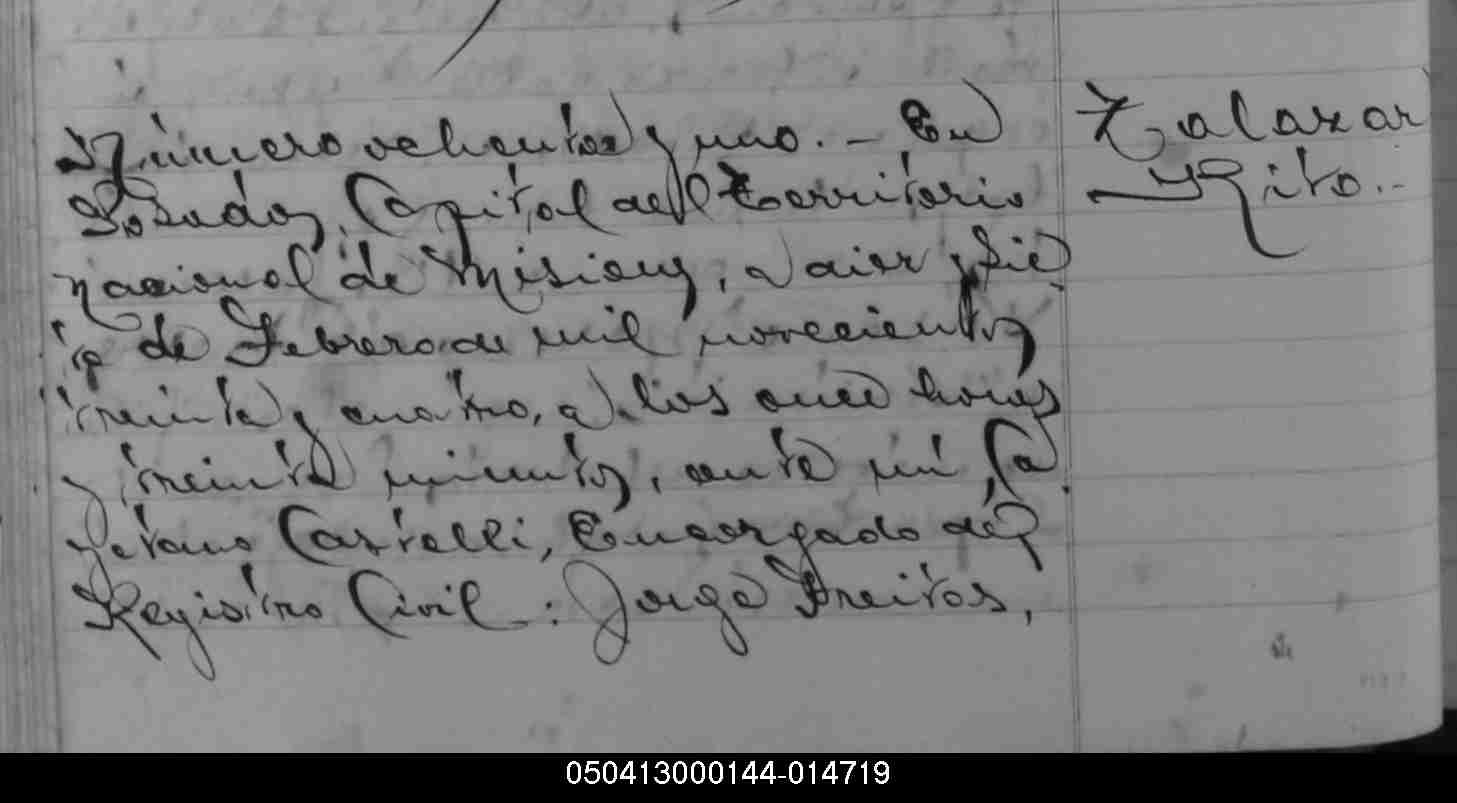 Número ochenta y uno. - En
Posadas, Capital del Territorio
nacional de Misiones, a diez y sie
te de Febrero de mil novecientos
treinta y cuatro, a las once horas
y treinta minutos, ante mí, Ca
yetano Castelli, Encargado del
Registro Civil: Jorge Freitas,
Talazar
Rito.-
050413000144-014719